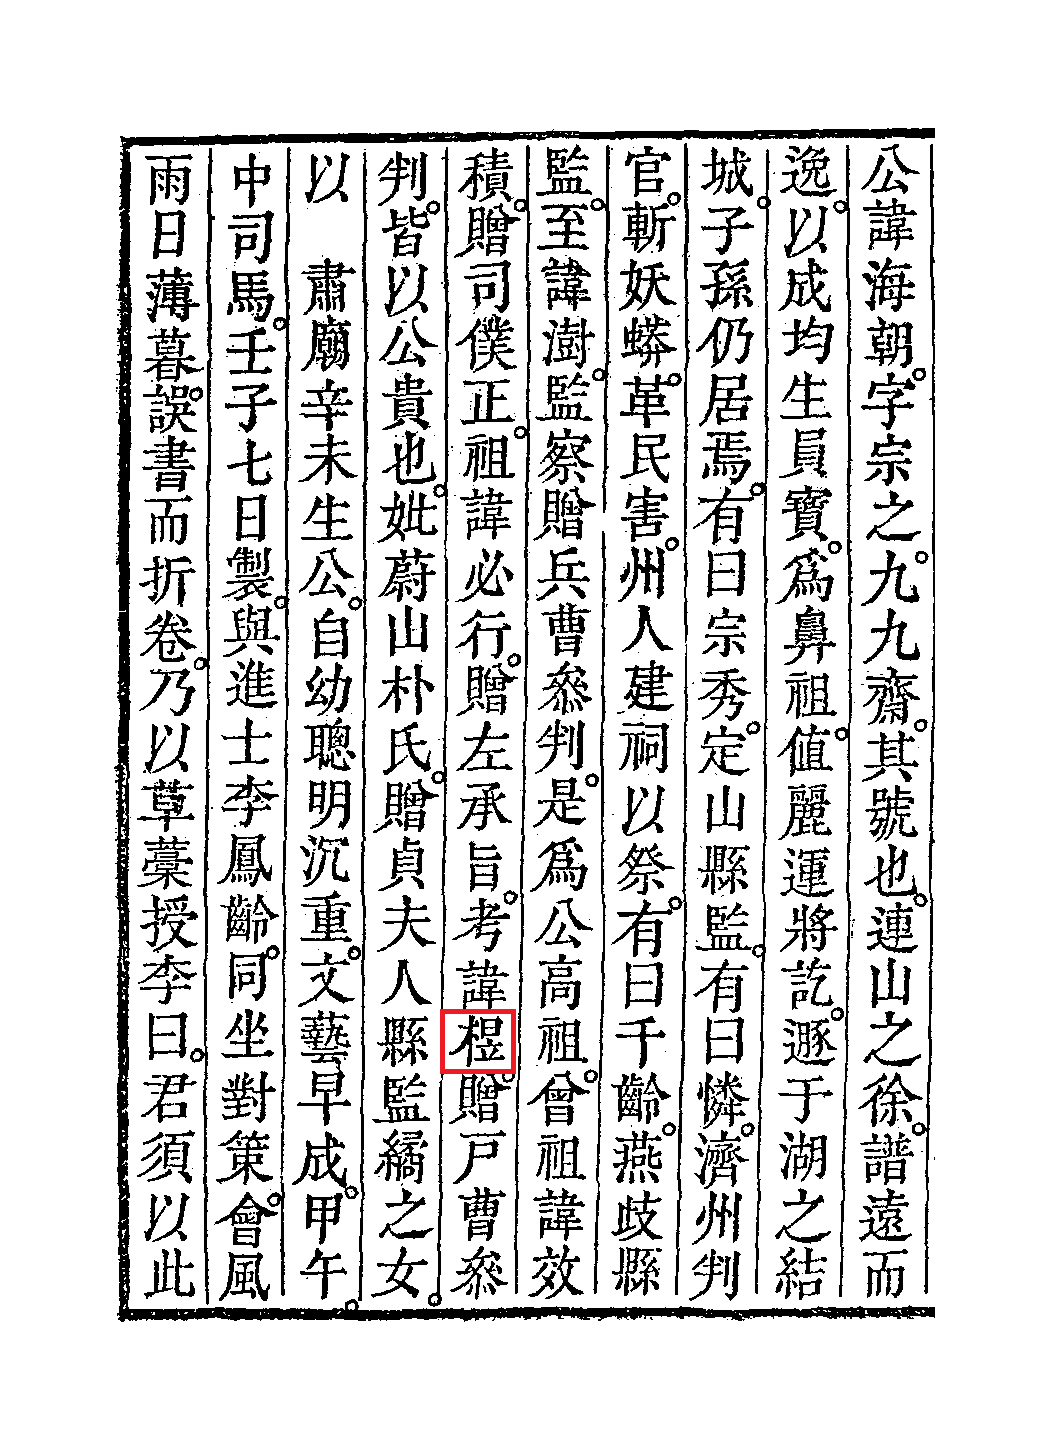 公諱海朝。字宗之九。九九齋。其號也。連山之徐。譜遠而
逸。以成均生員寶。爲鼻祖。值麗運將訖。遯于湖之結
城。子孫仍居焉。有曰宗秀。定山縣監。有曰憐。濟州判
官。斬妖蟒。革民害。州人建祠以祭。有曰千齡。燕歧縣
監。至諱澍。監察贈兵曹叅判。是爲公高祖。曾祖諱效
積。贈司僕正。祖諱必行。贈左承旨。考諱。贈戶曹叅
判。皆以公貴也。妣蔚山朴氏。贈貞夫人縣監繘之女。
以　肅廟辛未生公。自幼聰明沉重。文藝早成。甲午。
中司馬。壬子七日製。與進士李鳳齡。同坐對策。會風
雨日薄暮。誤書而折卷。乃以草藁授李曰。君須以此